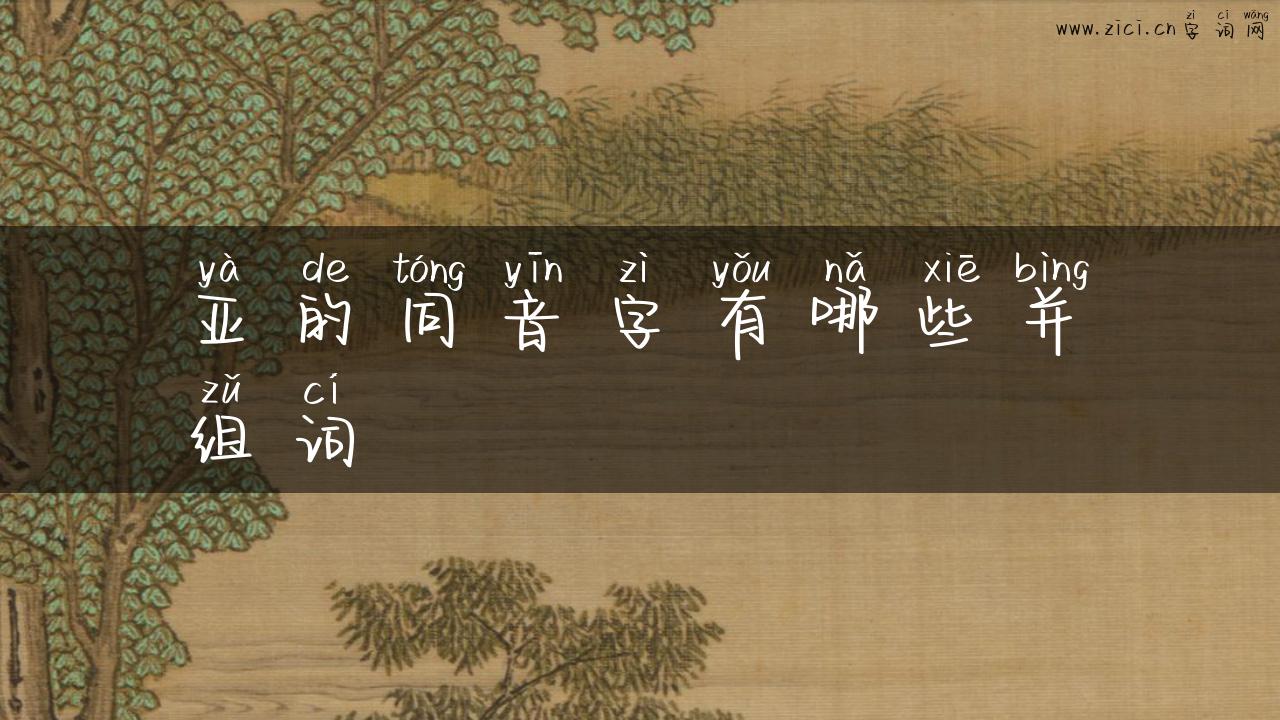 zì cí wǎng
www.zici.cn字词网
yà de tóng yīn zì yǒu nǎ xiē bìng
亚的同音字有哪些并
zǔ cí
组词